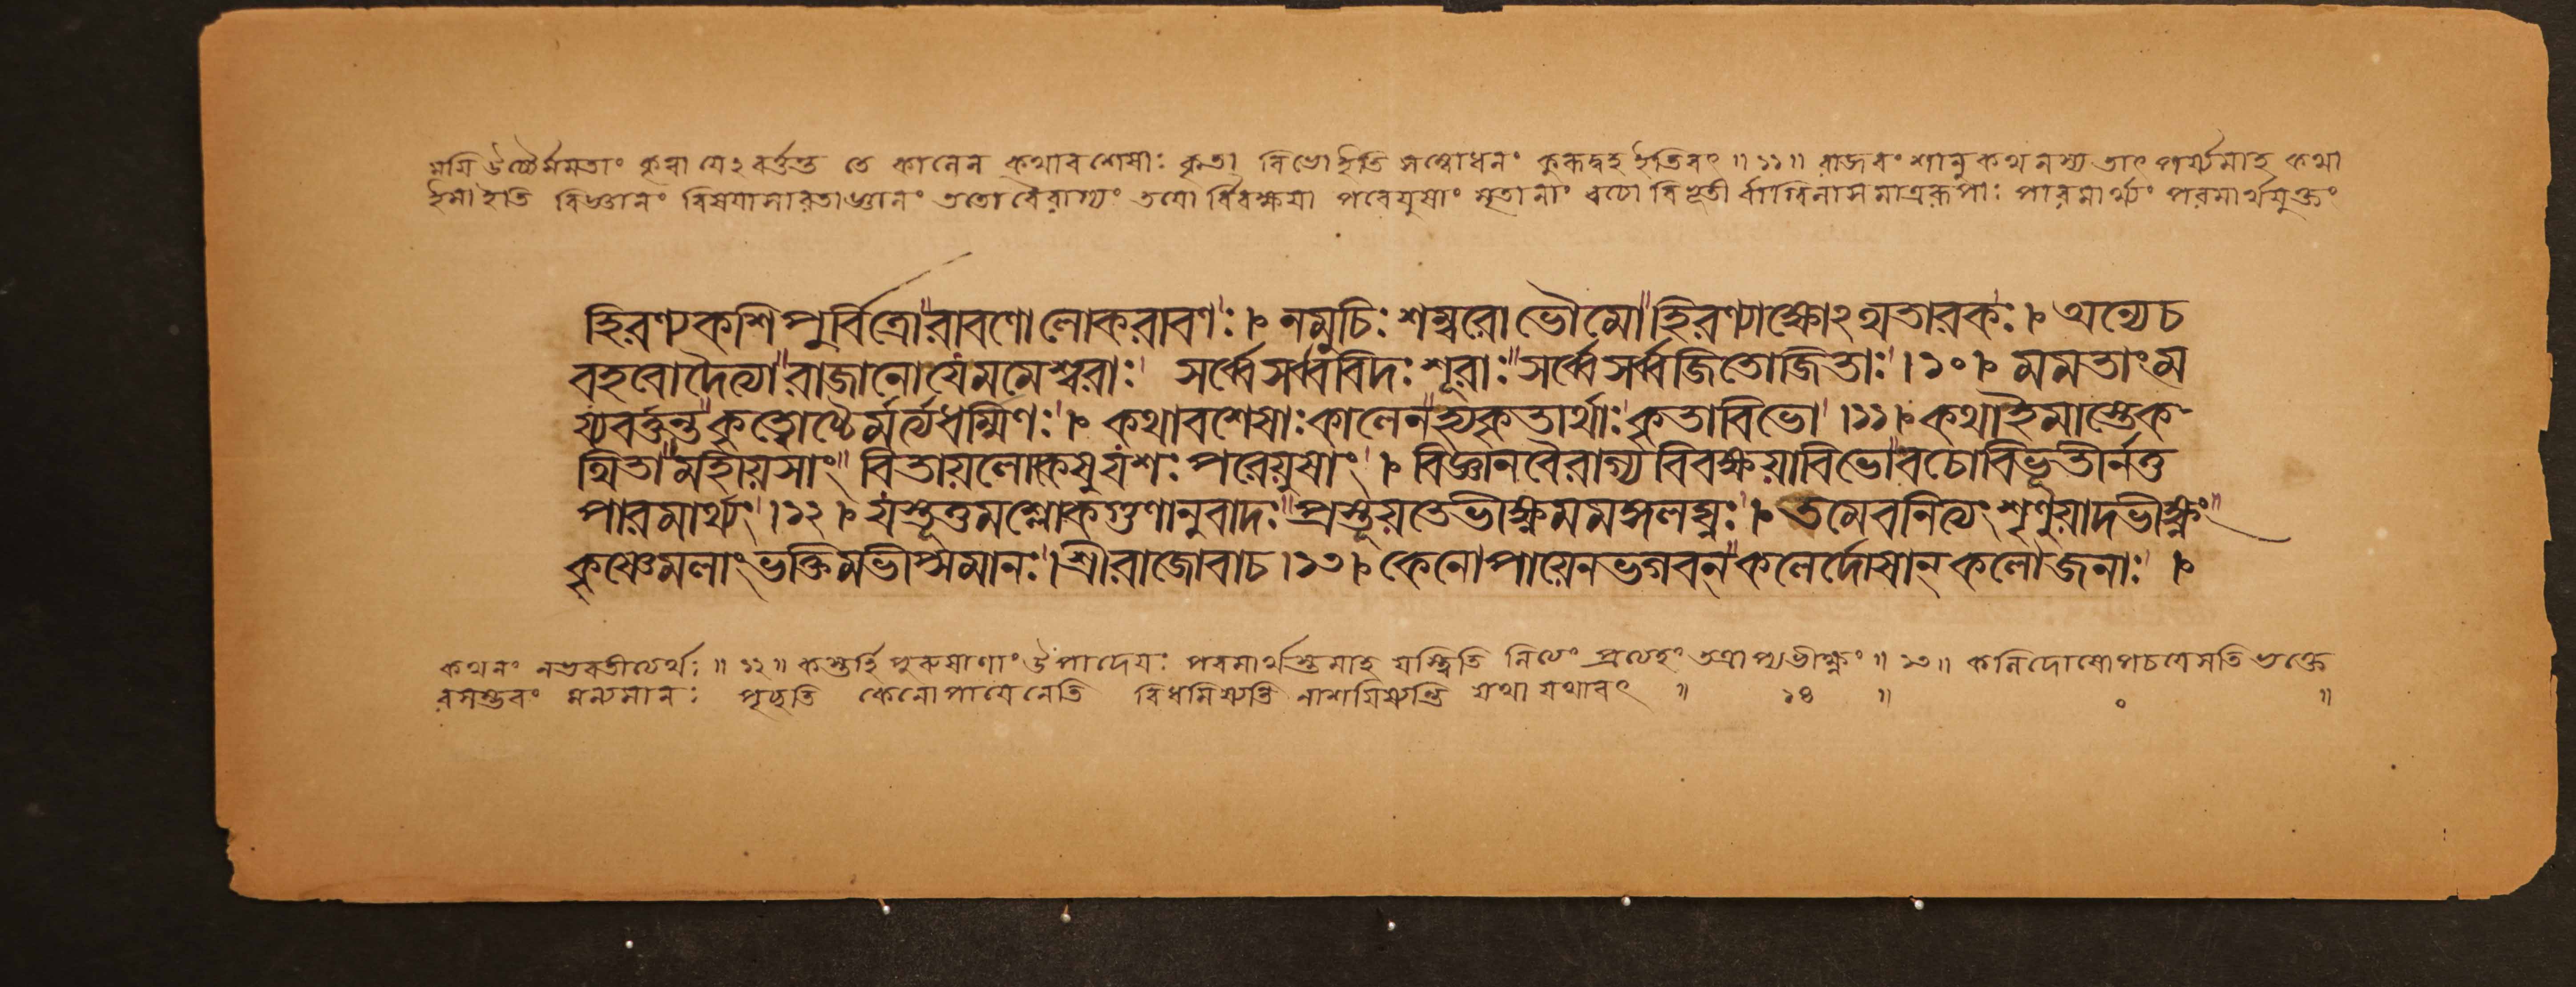 ময়ি উচ্চৈর্মমতাং কৃত্বা যেঽবর্ত্তন্ত তে কালেন কথাবশেষাঃ কৃতা বিভো ইতি সম্বোধনং কুরূদ্বহ ইতিবৎ ॥১১॥ রাজবংশানুকথনস্য তাৎপর্য্যমাহ কথা
ইমা ইতি বিজ্ঞানং বিষয়াসারতাজ্ঞানং ততো বৈরাগ্যং তয়োর্বিবক্ষয়া পরেয়ুষাং মৃতানাং বচোবিভূতীর্বাগ্বিলাসমাত্ররূপাঃ পারমার্থ্যং পরমার্থযুক্তং
হিরণ্যকশিপুর্বিত্রো রাবণো লোকরাবণঃ । নমুচিঃ শম্বরো ভৌমো হিরণ্যাক্ষোঽথতারকঃ । অন্যেচ
বহবো দৈত্যা রাজানো যে মমেশ্বরাঃ সর্ব্বে সর্ব্ববিদঃ শূরাঃ সর্ব্বে সর্ব্বজিতোজিতাঃ ।১০। মমতাং ম
য্যবর্ত্তন্ত কৃত্বোচ্চৈর্মর্ত্ত্যধর্ম্মিণঃ । কথাবশেষাঃ কালেন হ্যকৃতার্থাঃ কৃতা বিভো ।১১। কথা ইমাস্তে ক-
থিতা মহীয়সাং বিতায় লোকেষু যশঃ পরেয়ুষাং । বিজ্ঞানবৈরাগ্যবিবক্ষয়া বিভো বচোবিভূতীর্নতু
পারমার্থ্যং ।১২। যস্তূত্তমশ্লোকগুণানুবাদঃ প্রস্তূয়তেভীক্ষ্ণমমঙ্গলঘ্নঃ । তমেব নিত্যং শৃণুয়াদভীক্ষ্ণং
কৃষ্ণেমলাং ভক্তিমভীপ্সমানঃ। শ্রীরাজোবাচ ।১৩। কেনোপায়েন ভগবন্ কলের্দোষান্ কলৌ জনাঃ ।
কথনং নভবতীত্যর্থঃ ॥১২॥ কস্তর্হি পুরুষাণাং উপাদেয়ঃ পরমার্থস্তমাহ যস্ত্বিতি নিত্যং প্রত্যহং তত্রাপ্যভীক্ষ্ণং ॥১৩॥ কলিদোষোপচয়ে সতি ভক্তে
রসম্ভবং মন্যমানঃ পৃচ্ছতি কেনোপায়েনেতি বিধমিষ্যন্তি নাশয়িষ্যন্তি যথা যথাবৎ ॥ ১৪ ॥ ০ ॥